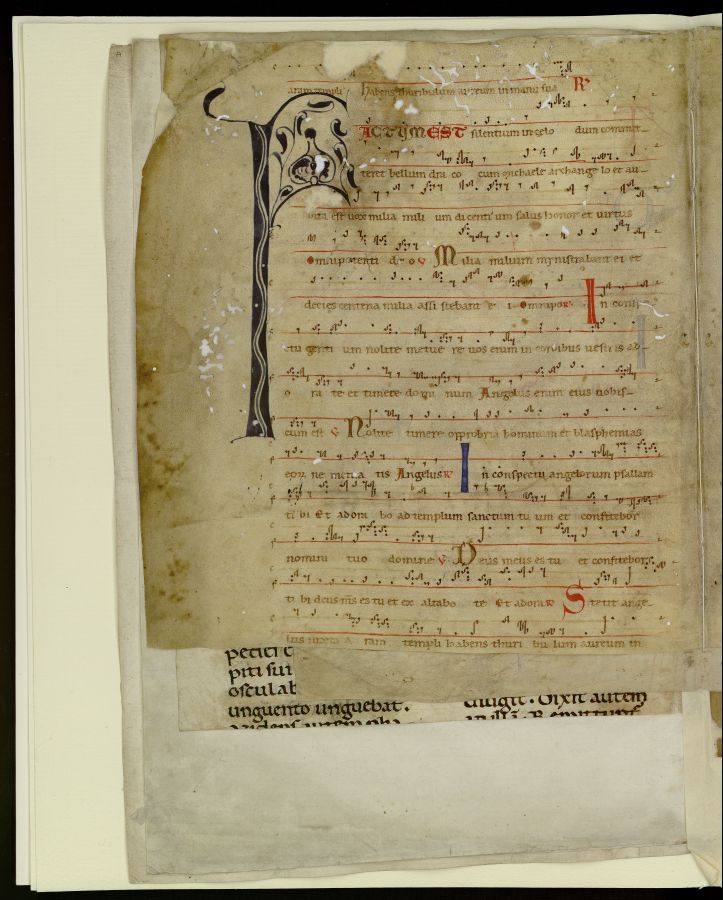 aram templi habens thuribulum aureum in manu sua R
FACTUM EST silentium in celo dum commit
teret bellum dra co cum michaele archange lo et au
dita est uox milia mili um dicenti um salus honor et uirtus
omnipotenti deo V Milia milium ministrabant ei et
decies centena milia assi stebant e i Omnipo R In conspe
ctu genti um nolite metue re uos enim in cordibus uestris ad
o ra te et timete do mi num Angelus enim eius uobis
cum est V Nolite timere opprobria hominum et blasphemias
eorum ne metua tis Angelus R In conspectu angelorum psallam
ti bi Et adora bo ad templum sanctum tu um et confitebor
nomini tuo domine V Deus meus es tu et confitebor
ti bi deus ms es tu et ex altabo te Et adora R Stetit ange
lus iuxta a ram templi habens thuri bu lum aureum in
piti sui
osculab
unguento unguebat.
dixit autem